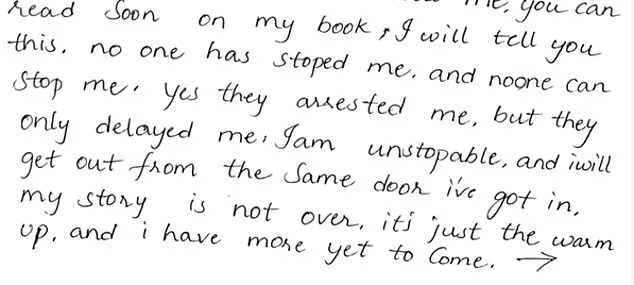 me, you can
read Soon on my book, I will tell you
this. no one has stoped me. and noone can
stop me. yes they arrested me, but they
only delayed me. Iam unstopable, and iwill
get out from the same door i've got in.
my story is not over, it's just the warm
up. and i have more yet to come. →